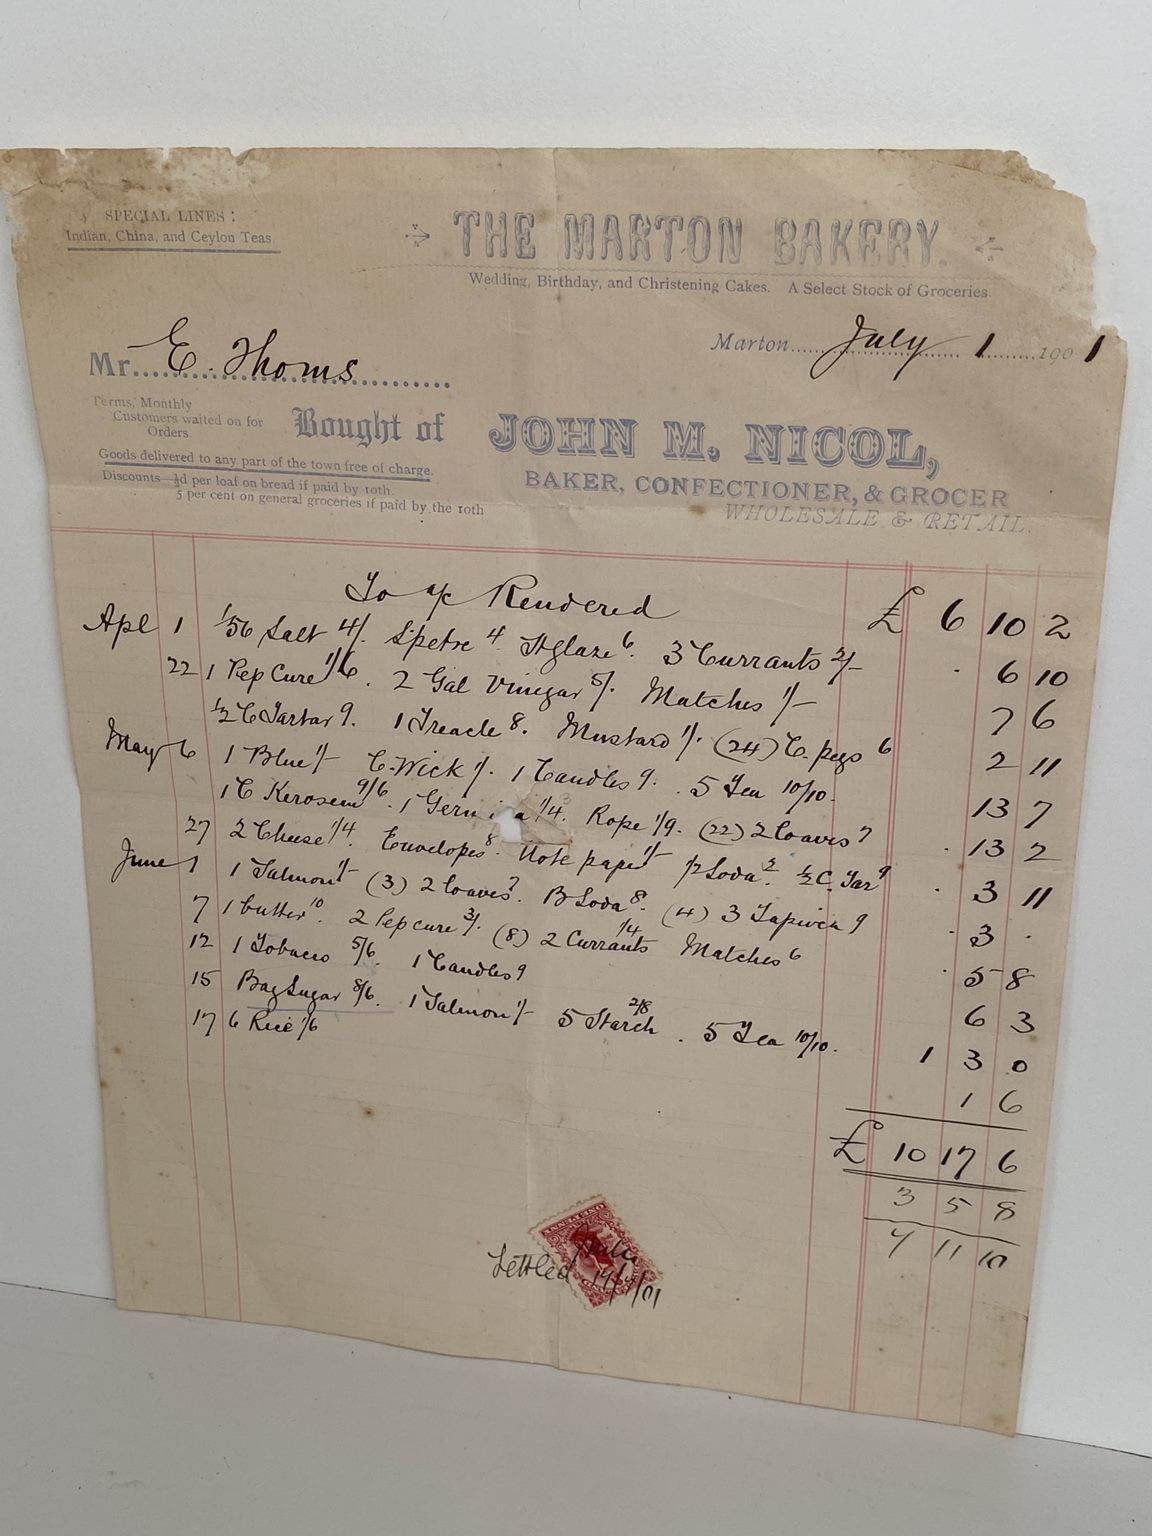 SPECIAL LINES:
Indian, China, and Ceylon Teas.
THE MARTON BAKERY.
Wedding, Birthday, and Christening Cakes. A Select Stock of Groceries
Marton July 1 1901
Mr. E. Thoms
Terms, Monthly
Customers waited on for
Orders
Bought of JOHN M. NICOL,
Goods delivered to any part of the town free of charge.
BAKER, CONFECTIONER, & GROCER
Discounts—½d per loaf on bread if paid by 10th.
5 per cent on general groceries if paid by the 10th
WHOLESALE & RETAIL.
To a/c Rendered £ 6 10 2
Apl 1 1/56 Salt 4/. S'petre 4. St glaze 6. 3 Currants 2/- 6 10
22 1 Pep Cure 1/6. 2 Gal Vinegar 5/. Matches 1/- 7 6
½ C Tartar 9. 1 Treacle 8. Mustard 1/. (24) C. pegs 6 2 11
May 6 1 Blue 1/- C. Wick 1/. 1 Candles 9. 5 Tea 10/10. 13 7
1 C Kerosene 9/6. 1 1/4. Rope 1/9. (22) 2 Loaves 7 13 2
27 2 Cheese 1/4. Envelopes 8. Note paper 1/- ½ Soda 2. ½ C. Tar 9 3 11
June 1 1 Salmon 1/- (3) 2 Loaves 7. B Soda 8. (4) 3 Tapioca 9 3 .
7 1 butter 10. 2 Pep cure 3/. (8) 2 Currants 1/4 Matches 6 5 8
12 1 Tobacco 5/6. 1 Candles 9 6 3
15 Bag Sugar 8/6. 1 Salmon 1/- 5 Starch 2/8. 5 Tea 10/10. 1 3 0
17 6 Rice 1/6 1 6
£ 10 17 6
3 5 8
7 11 10
ONE PENNY
Settled 17/7/01